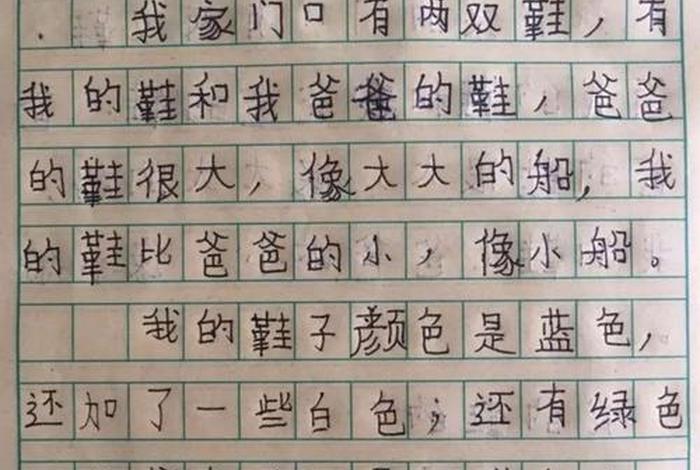 我家门口有两双鞋，有
我的鞋和我爸爸的鞋，爸爸
的鞋很大，像大大的船，我
的鞋比爸爸的小，像小船。
我的鞋子颜色是蓝色，
还加了一些白色；还有绿色